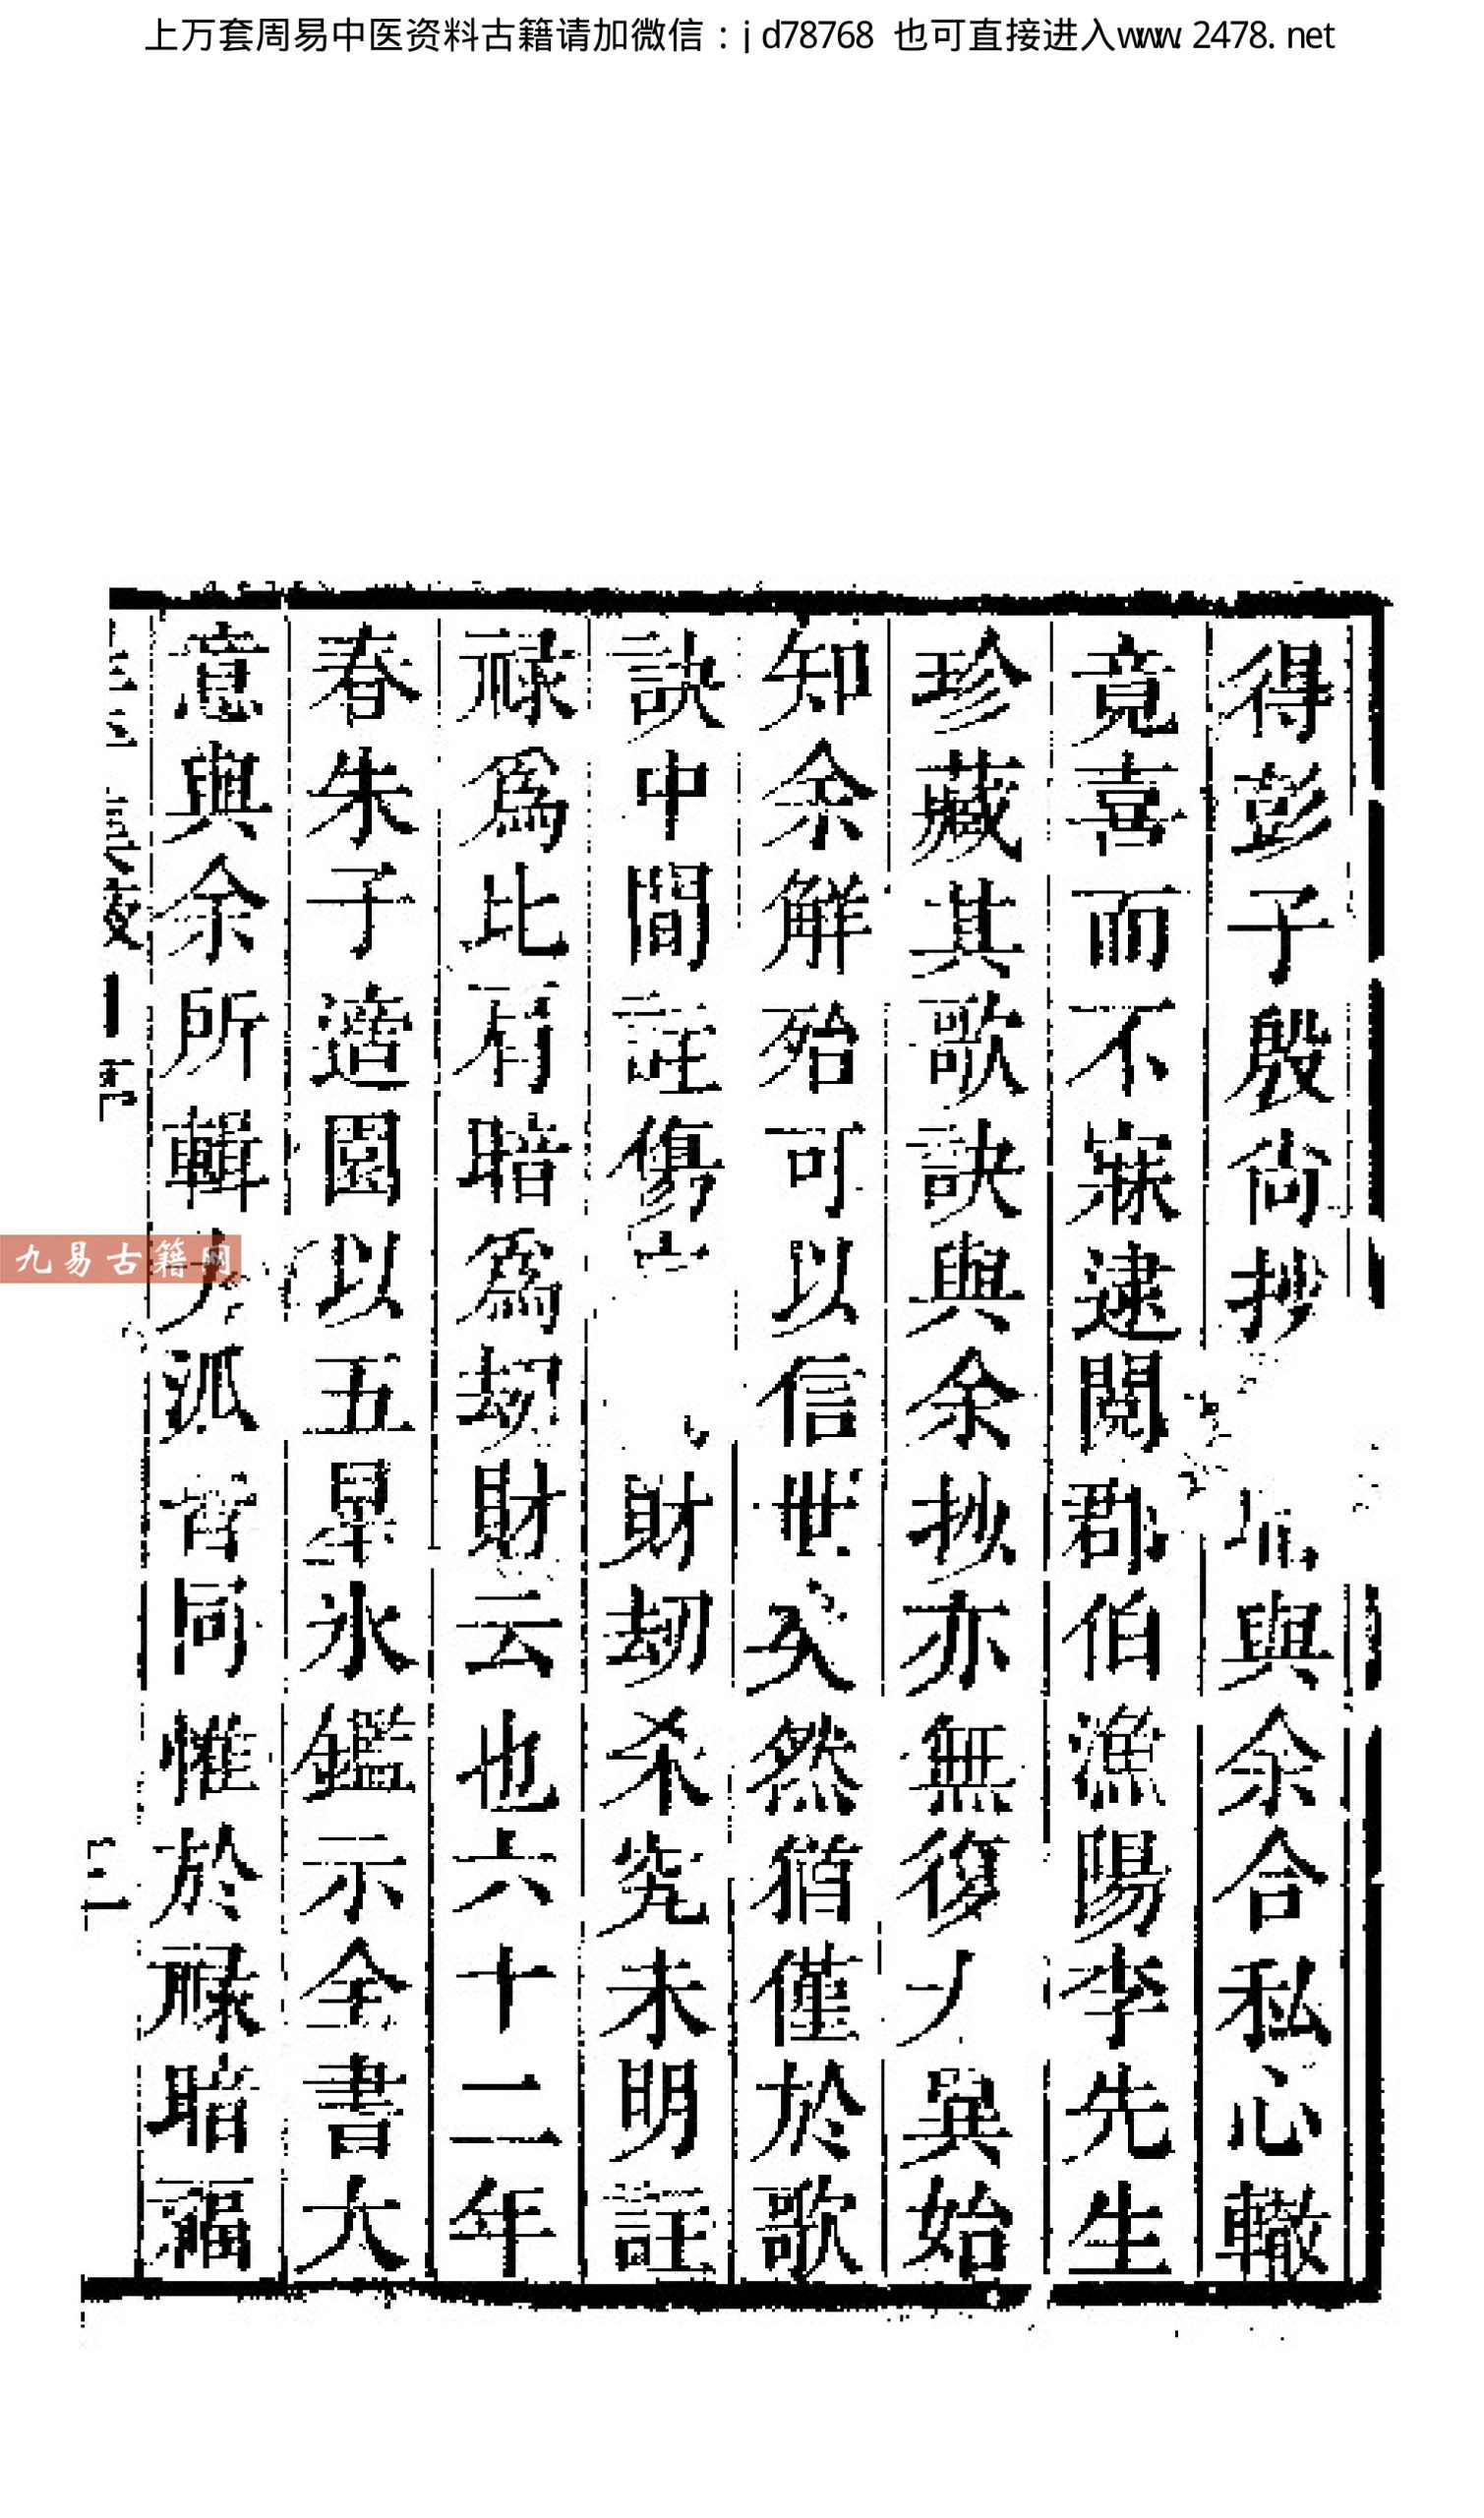 上万套周易中医资料古籍请加微信：jd78768 也可直接进入www.2478.net
得彭子殷尙抄與余合私心轍
竟喜而不寐逮閱郡伯漁陽李先生
珍藏其歌訣與余抄亦無復異始
知余解殆可以信世矣然猶僅於歌
訣中間註傷財刼杀究未明註
祿爲比肩暗爲刼財云也六十二年
春朱子造園以五星氷鑑示全書大
意與余所輯派同惟於祿暗福
九易古籍网